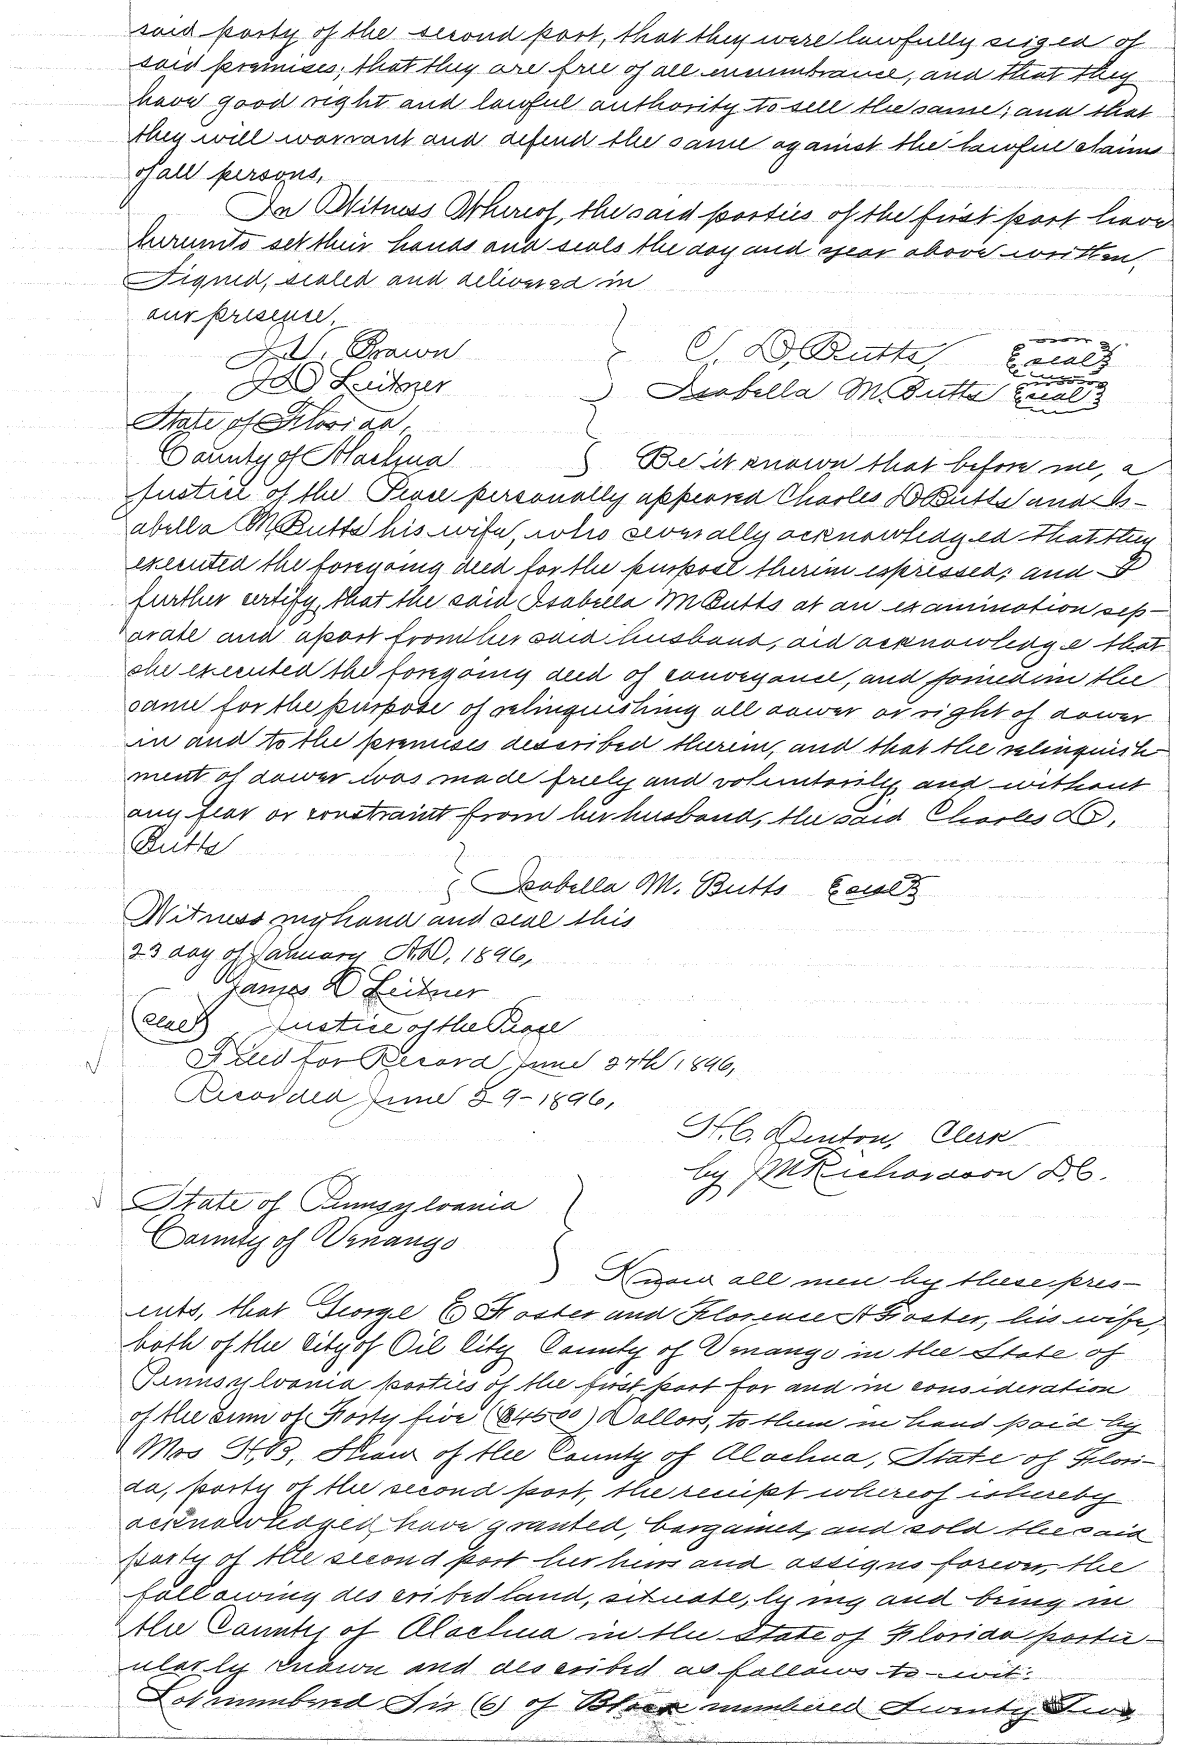 said party of the second part, that they were lawfully seized of
said premises; that they are free of all encumbrance, and that they
have good right and lawful authority to sell the same; and that
they will warrant and defend the same against the lawful claims
of all persons,
In Witness Whereof, the said parties of the first part have
hereunto set their hands and seals the day and year above written,
Signed, sealed and delivered in
our presence,
Brown C. D, Butts, seal
J D Leitner Isabella M. Butts seal
State of Florida,
County of Alachua } Be it known that before me, a
Justice of the Peace personally appeared Charles D Butts and Is-
abella M. Butts his wife, who severally acknowledged that they
executed the foregoing deed for the purpose therein expressed; and I
further certify, that the said Isabella M Butts at an examination sep-
arate and apart from her said husband, did acknowledge that
she executed the foregoing deed of conveyance, and joined in the
same for the purpose of relinquishing all dower or right of dower
in and to the premises described therein, and that the relinquish
ment of dower was made freely and voluntarily, and without
any fear or constraint from her husband, the said Charles D,
Butts
Isabella M. Butts seal
Witness my hand and seal this
23 day of January A.D, 1896,
James D Leitner
(seal) Justice of the Peace
Filed for Record June 27th 1896,
Recorded June 29-1896,
H.C. Denton, Clerk
by J M Richardson D.C.
State of Pennsylvania
County of Venango
Know all men by these pres-
ents, that George E Foster and Florence A Foster, his wife,
both of the City of Oil City County of Venango in the State of
Pennsylvania parties of the first part for and in consideration
of the sum of Forty five ($45 00) Dollars, to them in hand paid by
Mrs H.B, Shaw of the County of Alachua, State of Flori-
da, party of the second part, the receipt whereof is hereby
acknowledged, have granted, bargained, and sold the said
party of the second part her heirs and assigns forever, the
following described land, situate, lying and being in
the County of Alachua in the State of Florida partic-
ularly known and described as follows to-wit:
Lot numbered Six (6) of Block numbered Twenty Two